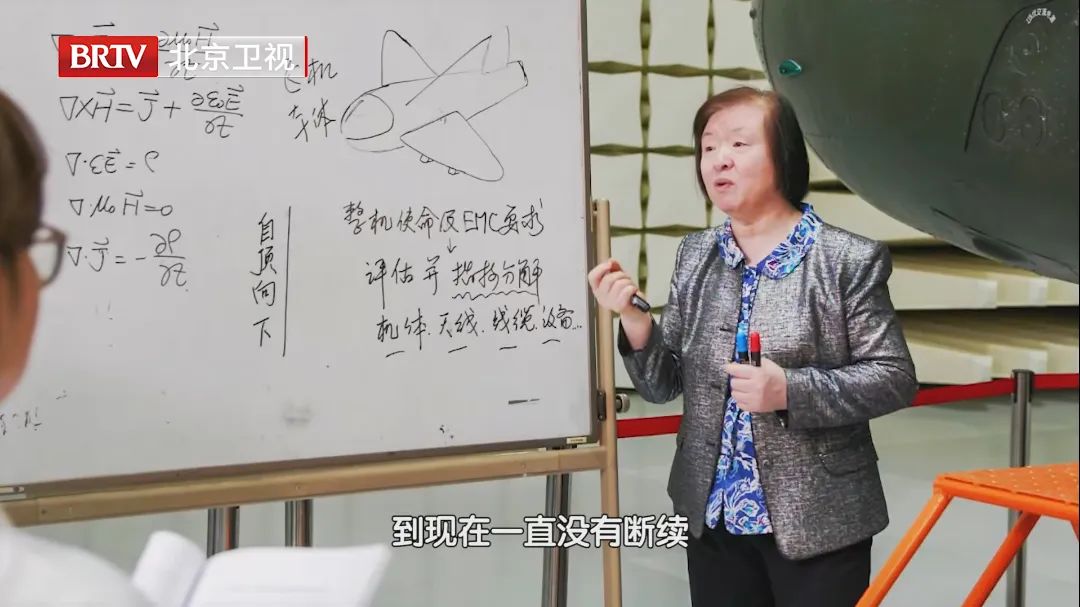 BRTV 北京卫视
∇×H⃗=J⃗+∂ε₀E⃗/∂t
∇·εE⃗=ρ
∇·μ₀H⃗=0
∇·J⃗=-∂ρ/∂t
飞机
自顶向下
整机使命及EMC要求
↓
评估并指标分解
机体、天线、线缆、设备...
到现在一直没有断续